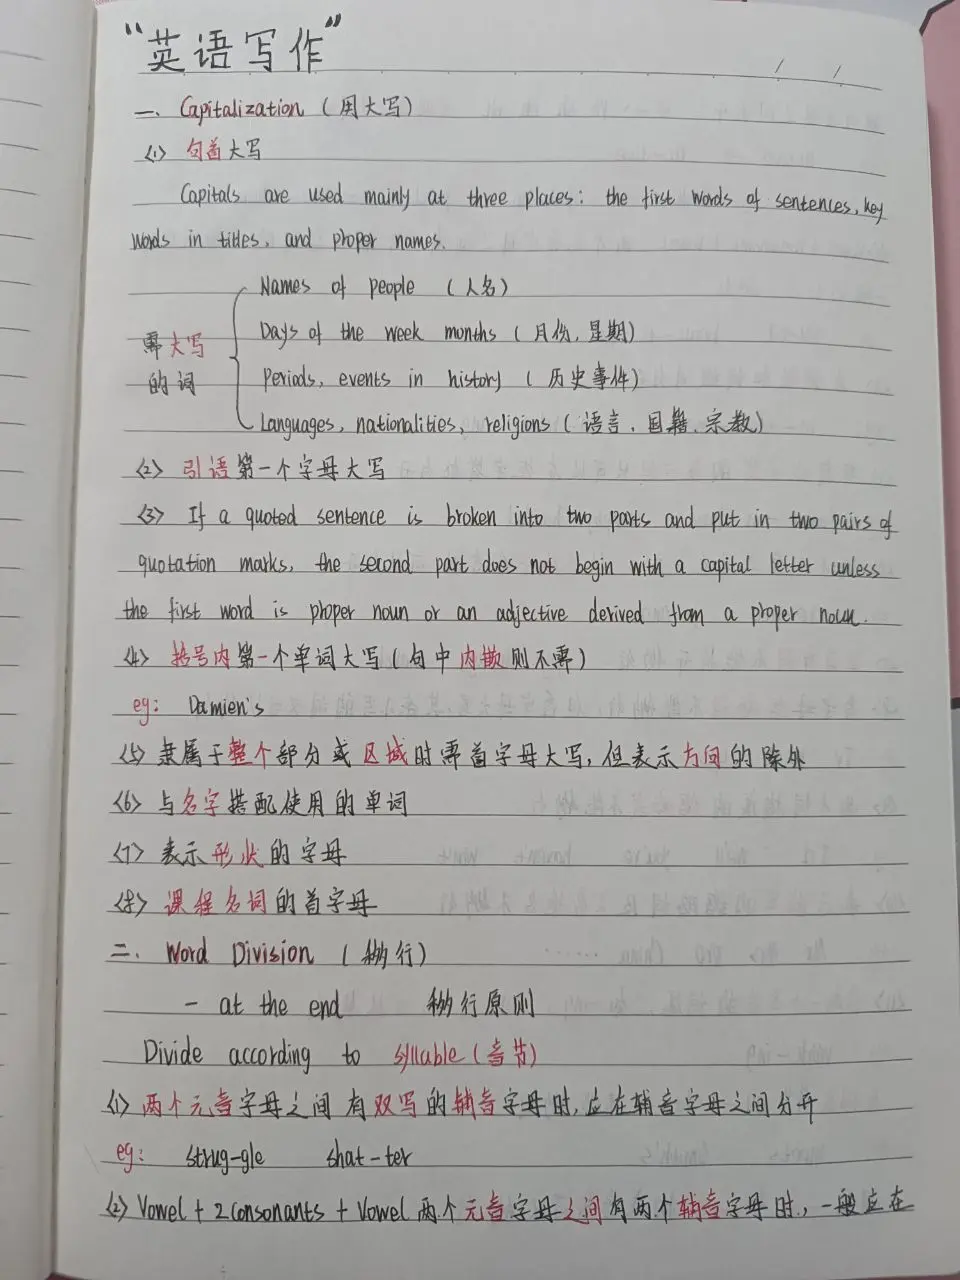 “英语写作”
一、Capitalization（用大写）
<1> 句首大写
Capitals are used mainly at three places: the first words of sentences, key
words in titles, and proper names.
Names of people （人名）
Days of the week months（月份，星期）
需大写
的词
Periods, events in history （历史事件）
Languages, nationalities, religions（语言、国籍、宗教）
<2> 引语第一个字母大写
<3> If a quoted sentence is broken into two parts and put in two pairs of
quotation marks, the second part does not begin with a capital letter unless
the first word is proper noun or an adjective derived from a proper noun.
<4> 括号内第一个单词大写（句中内嵌则不需）
eg: Damien's
<5> 隶属于整个部分或区域时需首字母大写，但表示方向的除外
<6> 与名字搭配使用的单词
<7> 表示形状的字母
<8> 课程名词的首字母
二、Word Division（移行）
- at the end 移行原则
Divide according to syllable（音节）
<1> 两个元音字母之间有双写的辅音字母时，应在辅音字母之间分开
eg: strug-gle shat-ter
<2> Vowel + 2 consonants + Vowel 两个元音字母之间有两个辅音字母时，一般应在